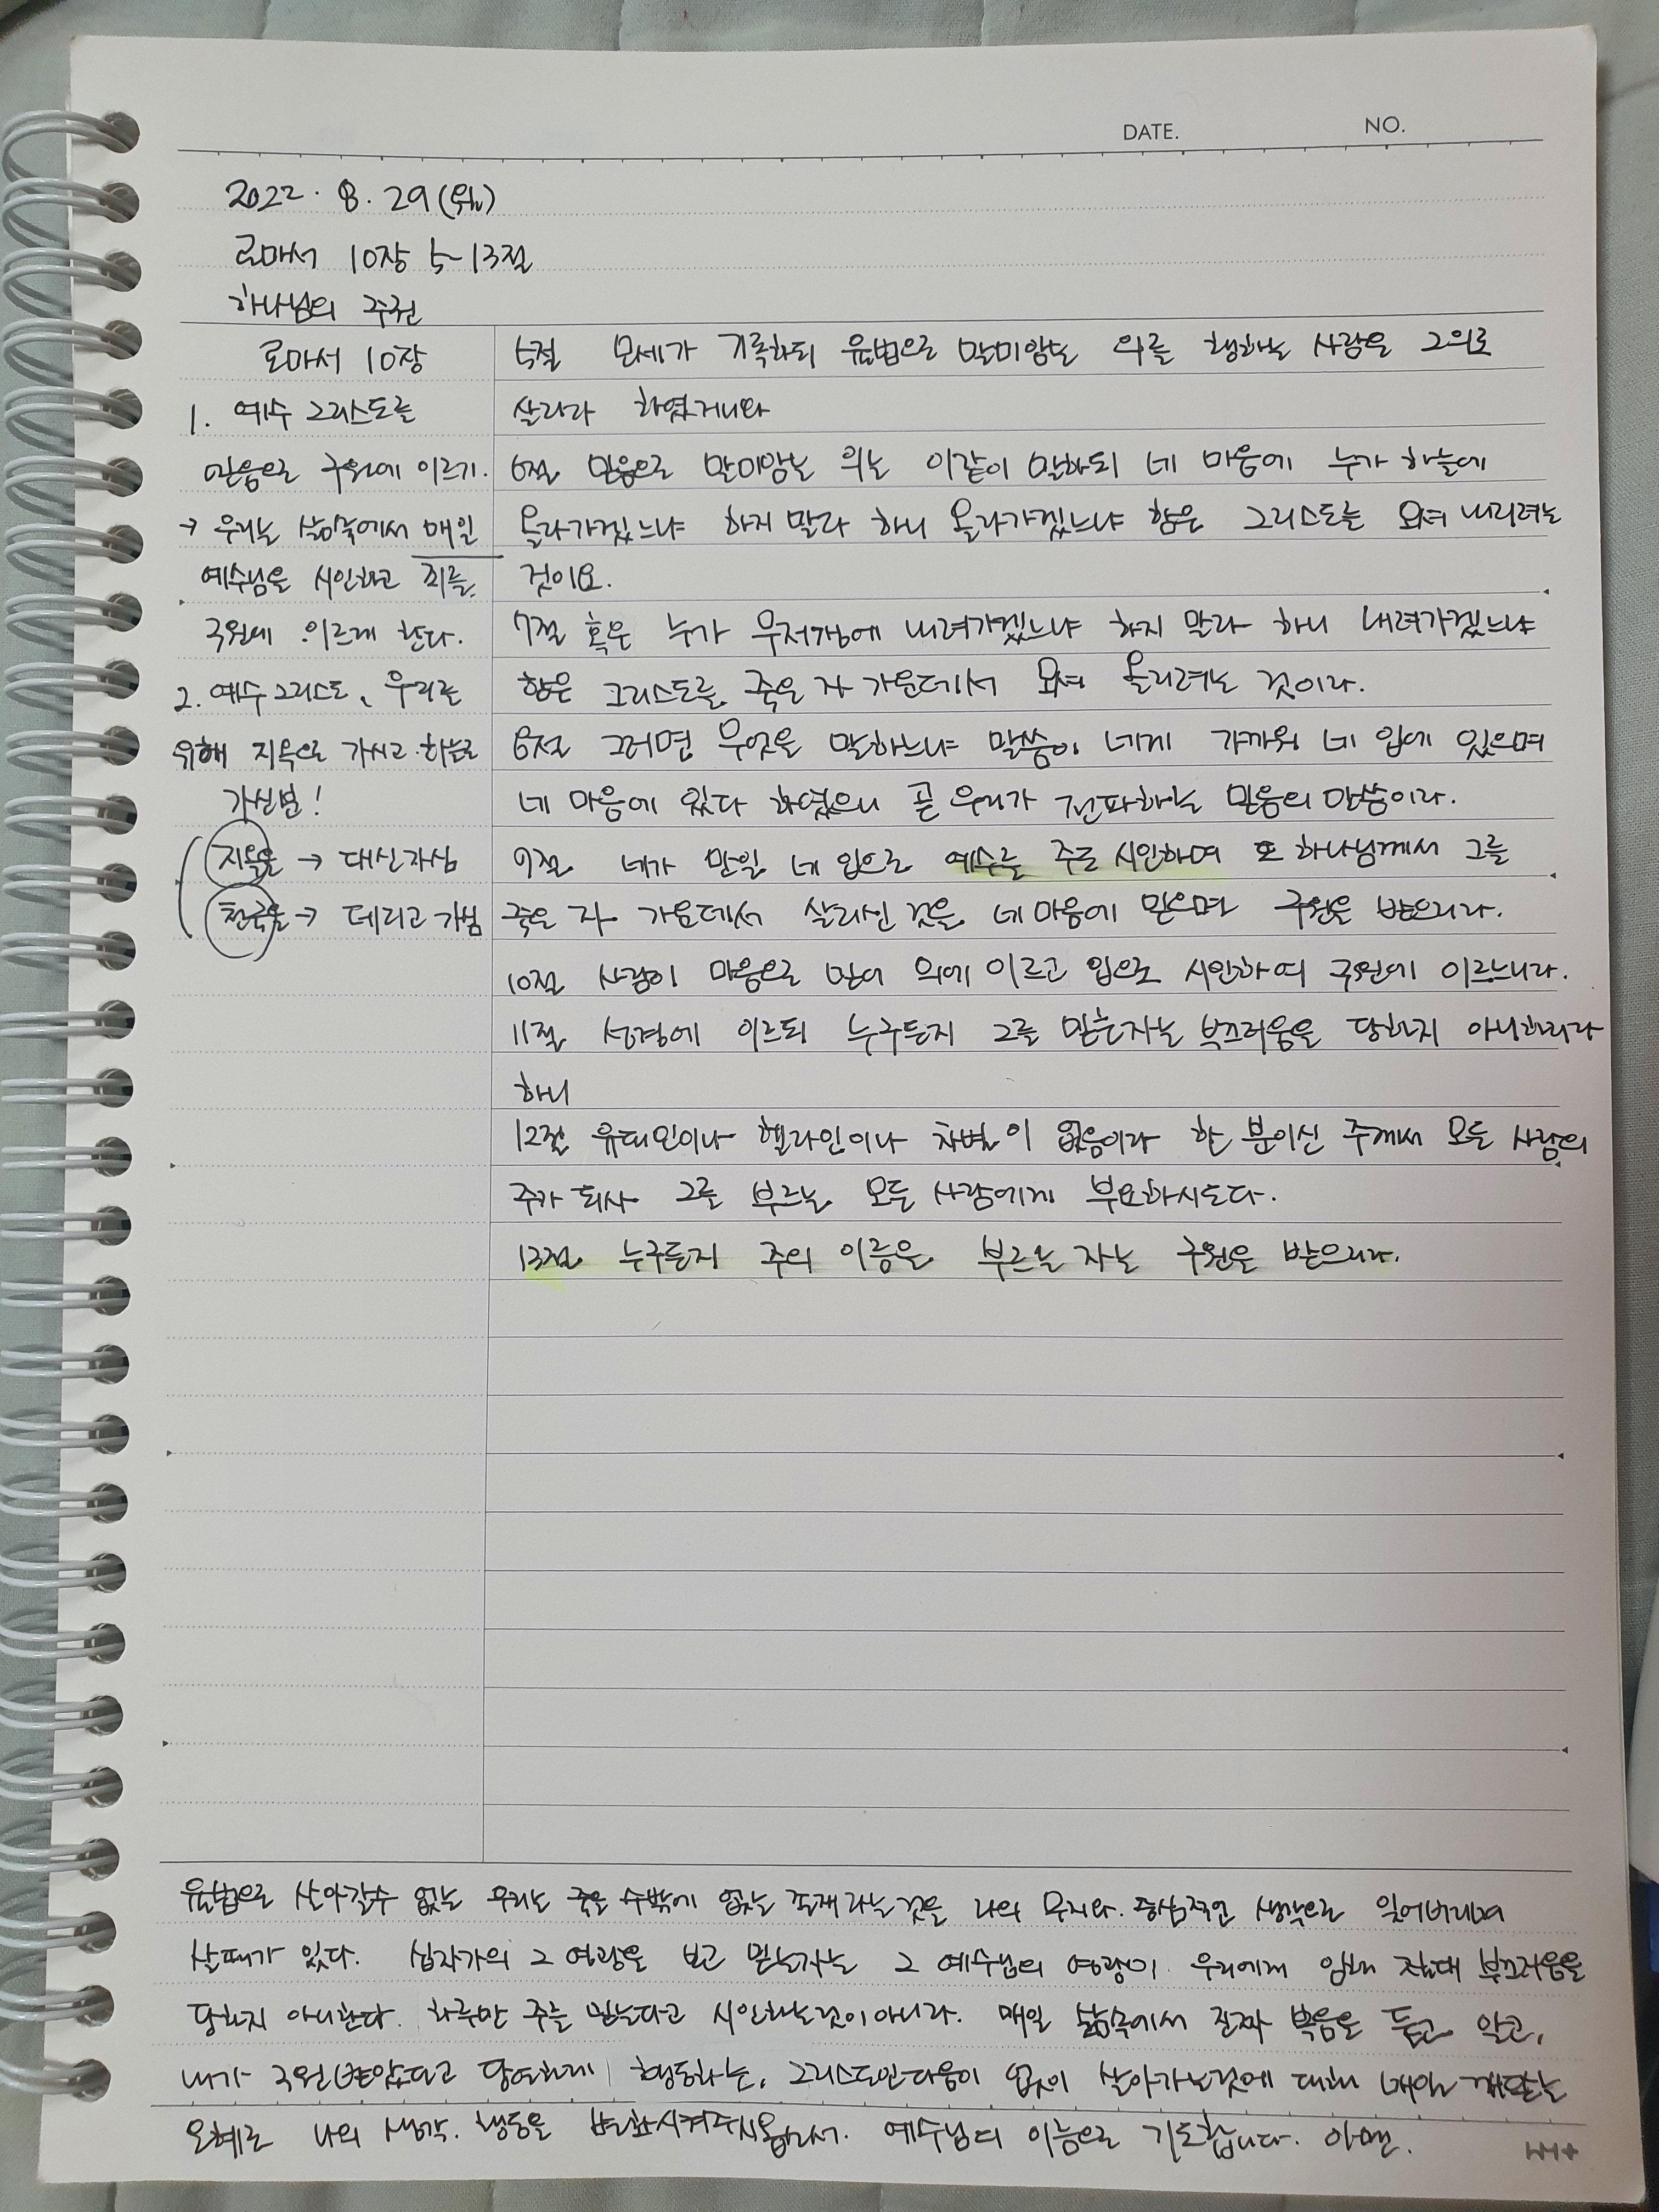 DATE. NO.
2022. 8. 29(월)
로마서 10장 5~13절
하나님의 주권
로마서 10장
1. 예수 그리스도를
믿음으로 구원에 이르기.
→ 우리는 삶속에서 매일
예수님을 시인하고 죄를
구원에 이르게 한다.
2. 예수그리스도, 우리를
위해 지옥으로 가시고 하늘로
가신분!
지옥을 → 대신가심
천국을 → 데리고 가심
5절 모세가 기록하되 율법으로 말미암는 의를 행하는 사람은 그의로
살리라 하였거니와
6절 믿음으로 말미암는 의는 이같이 말하되 네 마음에 누가 하늘에
올라가겠느냐 하지말라 하니 올라가겠느냐 함은 그리스도를 모셔 내리려는
것이요.
7절 혹은 누가 무저갱에 내려가겠느냐 하지 말라 하니 내려가겠느냐
함은 그리스도를 죽은 자 가운데서 모셔 올리려는 것이라.
8절 그러면 무엇을 말하느냐 말씀이 네게 가까워 네 입에 있으며
네 마음에 있다 하였으니 곧 우리가 전파하는 믿음의 말씀이라.
9절 네가 만일 네 입으로 예수를 주로 시인하며 또 하나님께서 그를
죽은 자 가운데서 살리신 것을 네 마음에 믿으면 구원을 받으리라.
10절 사람이 마음으로 믿어 의에 이르고 입으로 시인하여 구원에 이르느니라.
11절 성경에 이르되 누구든지 그를 믿는자는 부끄러움을 당하지 아니하리라
하니
12절 유대인이나 헬라인이나 차별이 없음이라 한 분이신 주께서 모든 사람의
주가 되사 그를 부르는 모든 사람에게 부요하시도다.
13절 누구든지 주의 이름을 부르는 자는 구원을 받으리라.
율법으로 살아갈수 없는 우리는 죽을 수밖에 없는 존재라는것을 나의 무지와 중심적인 생각으로 잊어버리며
살때가 있다. 십자가의 그 영광을 보고 믿는자는 그 예수님의 영광이 우리에게 임해 절대 부끄러움을
당하지 아니한다. 하루만 주를 믿는다고 시인하는것이아니라. 매일 삶속에서 진짜 복음을 듣고 알고,
내가 구원받았다고 당연하게 행동하는, 그리스도인다움이 없이 살아가는것에 대해 매일 깨닫는
은혜로 나의 생각, 행동을 변화시켜주시옵소서. 예수님의 이름으로 기도합니다. 아멘.